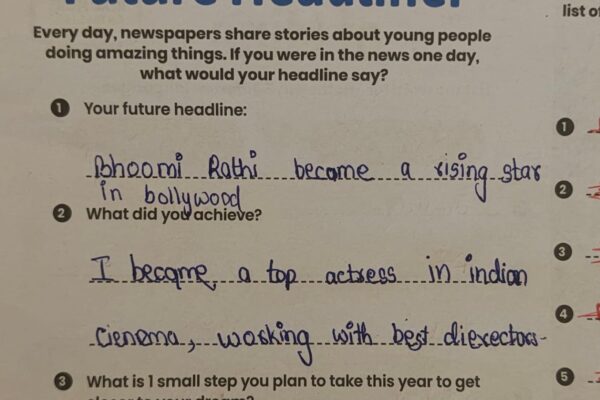 Future Headliner
list of
Every day, newspapers share stories about young people
doing amazing things. If you were in the news one day,
what would your headline say?
1 Your future headline:
Bhoomi Rathi become a rising star
in bollywood
2 What did you achieve?
I became a top actress in indian
cienema, working with best diexectors-
3 What is 1 small step you plan to take this year to get
closer to your dream?
1
2
3
4
5